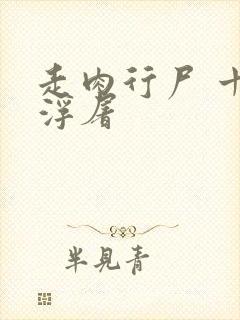 走肉行尸
浮屠
半见青